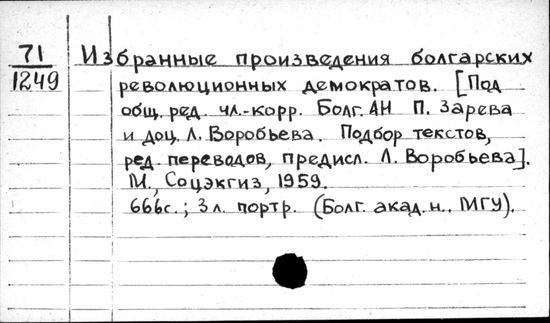 71 Избранные произведения болгарских
1249 революционных демократов. [Под
общ. ред. чл.-корр. Болг. АН П. Зарева
и доц. Л. Воробьева. Подбор текстов,
ред. переводов, предисл. Л. Воробьева].
М., Соцэкгиз, 1959.
666с.; 3 л. портр. (Болг. акад. н.. МГУ).